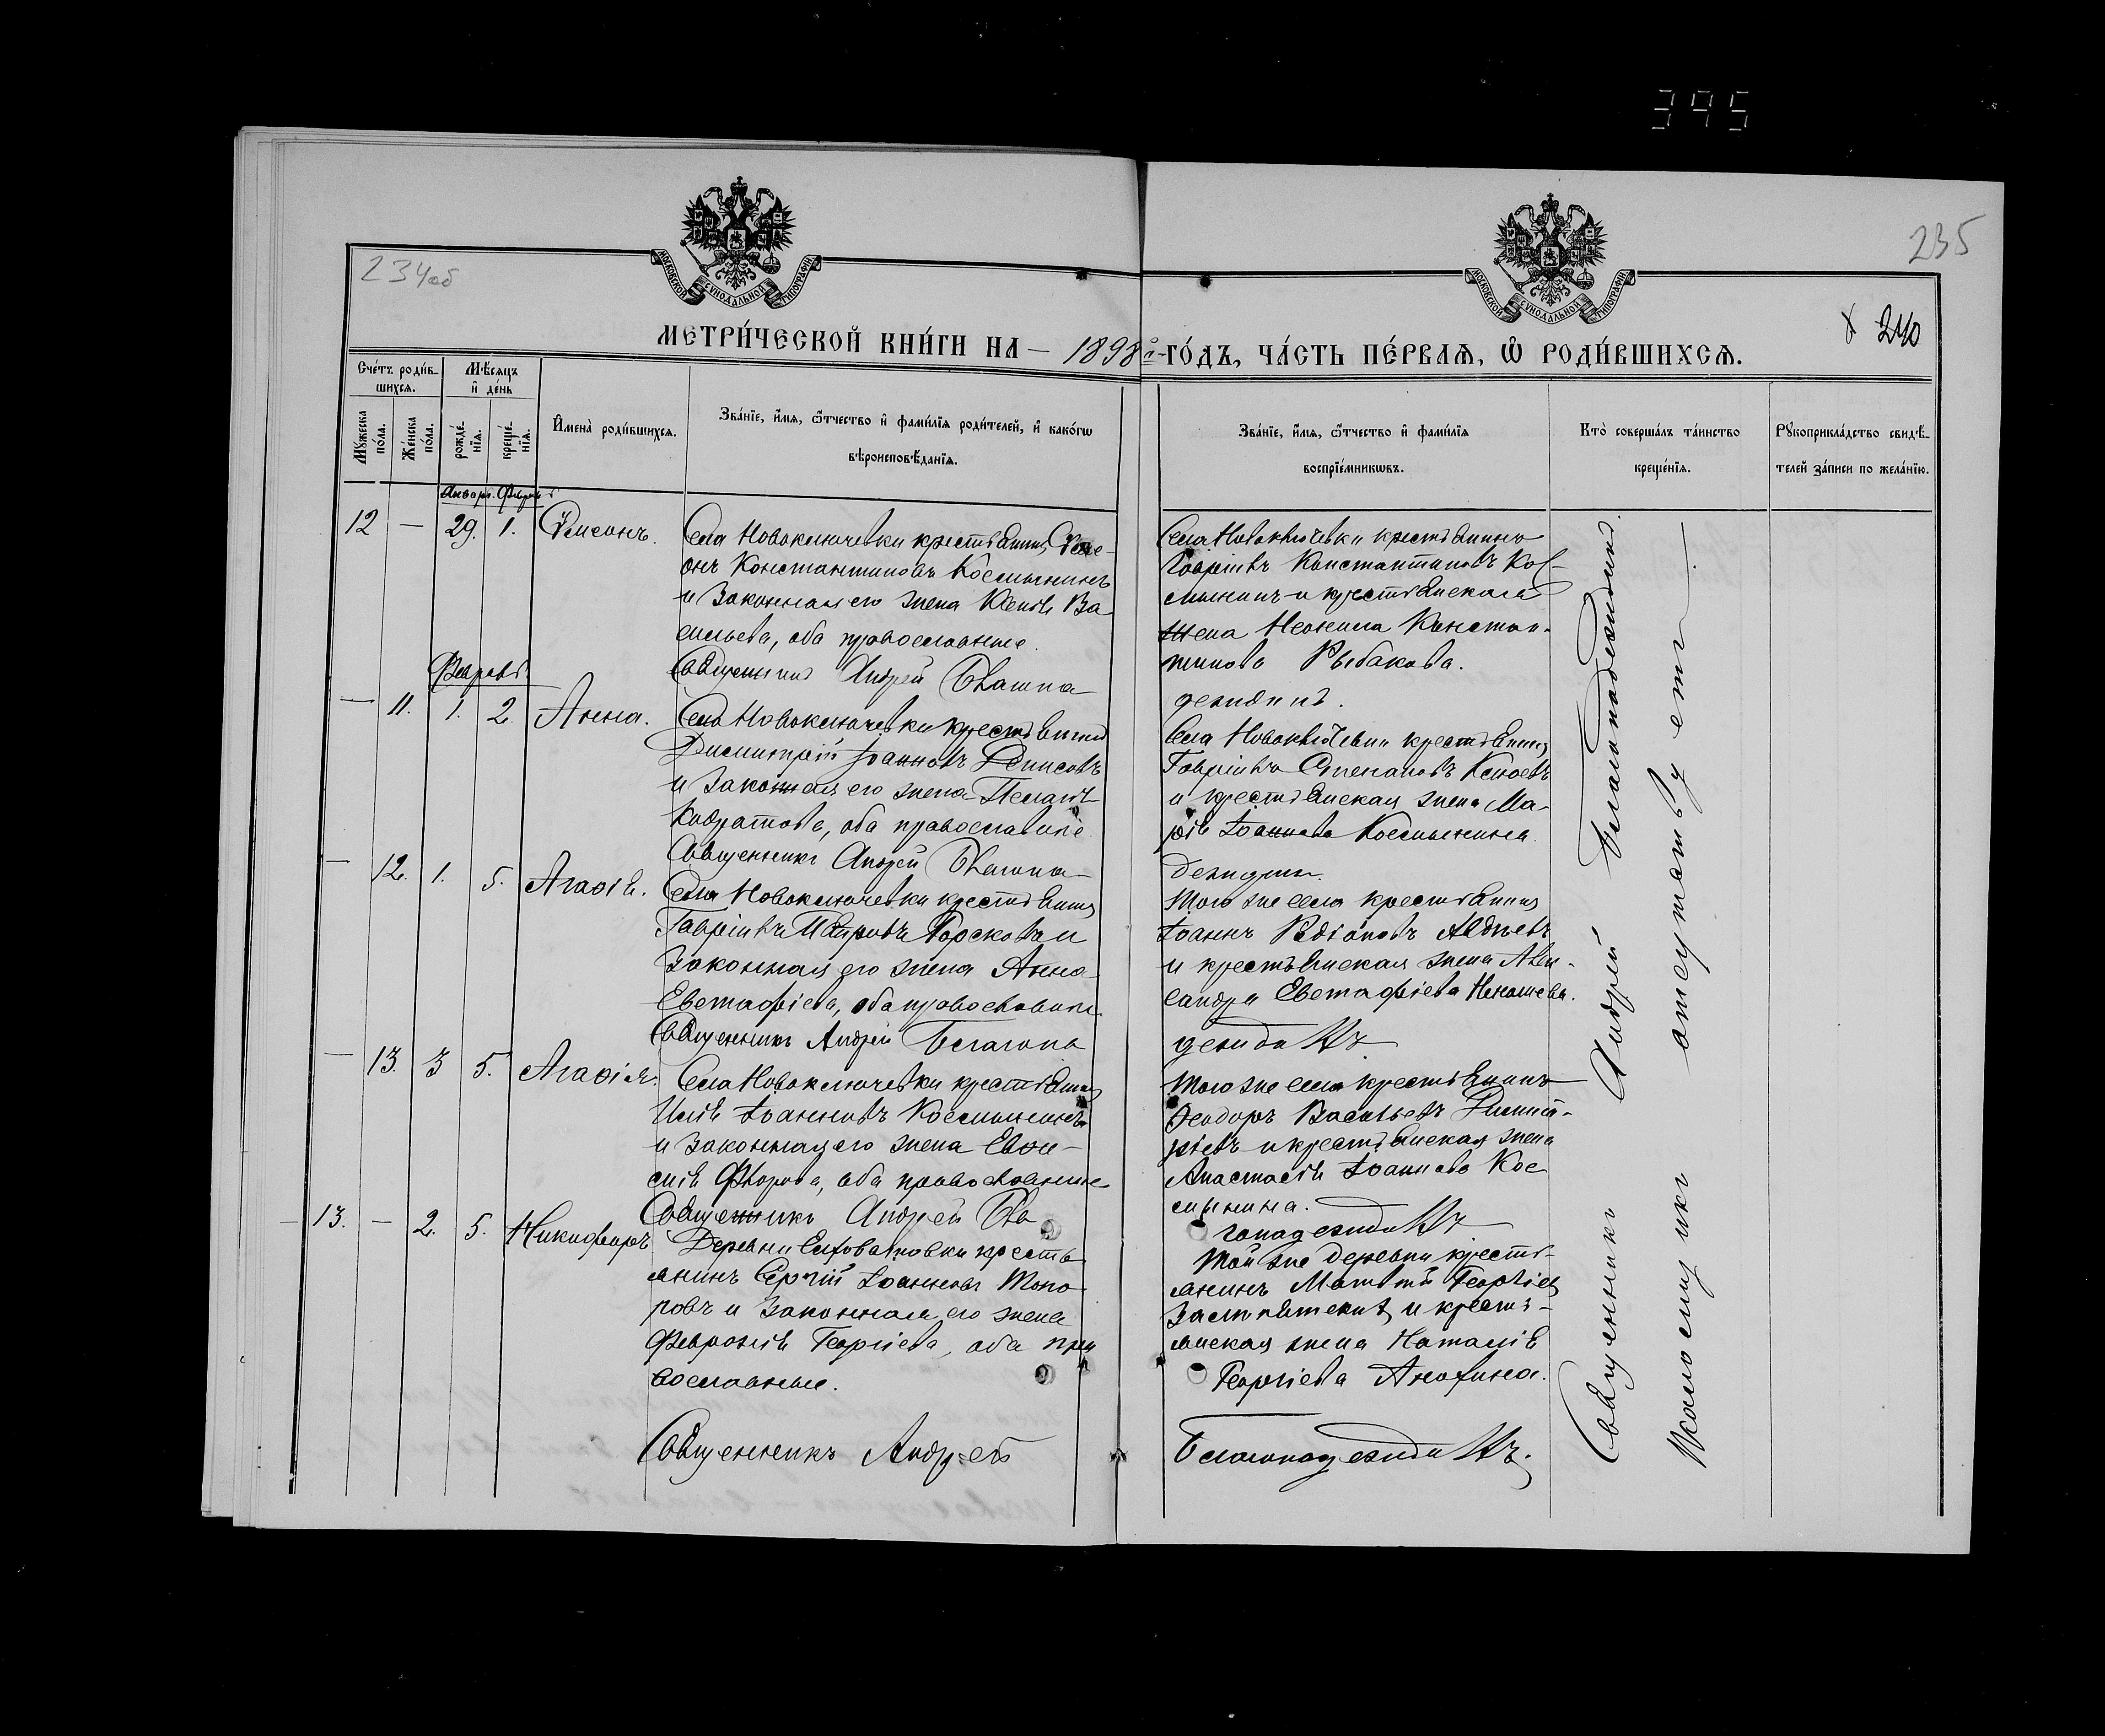 395
234об
235
240
МОСКОВСКОЙ СѴНОДАЛЬНОЙ ТИПОГРАФІИ
МОСКОВСКОЙ СѴНОДАЛЬНОЙ ТИПОГРАФІИ
МЕТРИ́ЧЕСКОЙ КНИ́ГИ НА — 1898й — ГО́ДЪ, ЧА́СТЬ ПЕ́РВАѦ, Ѽ РОДИ́ВШИХСѦ.
Сче́тъ роди́в-
шихсѧ.
Мѣ́сѧцъ
и҆ де́нь
Мꙋ́жеска по́ла.
Же́нска по́ла.
рожде́-
нїѧ.
креще́-
нїѧ.
И҆мена̀ роди́вшихсѧ.
Зва́нїе, и҆́мѧ, ѻ҆́тчество и҆ фами́лїѧ роди́телей, и҆ како́гѡ
вѣроисповѣ́данїѧ.
Зва́нїе, и҆́мѧ, ѻ҆́тчество и҆ фами́лїѧ
воспрїе́мникѡвъ.
Кто̀ соверша́лъ та́инство
креще́нїѧ.
Рꙋкоприкла́дство свидѣ́-
телей за́писи по жела́нїю.
Января. Февраль
12 — 29. 1. Симеонъ.
Села Новоключевки крестьянинъ Симе-
онъ Константиновъ Космынинъ
и законная его жена Ксенія Ва-
сильева, оба православные.
Священникъ Андрей Благона-
Села Новоключевки крестьянинъ
Гавріилъ Константиновъ Кос-
мынинъ и крестьянская
жена Неонила Констан-
тинова Рыбакова.
деждинъ.
Февраль
— 11. 1. 2. Анна.
Села Новоключевки крестьянинъ
Димитрій Іоанновъ Денисовъ
и законная его жена Пелагія
Кодратова, оба православные.
Священникъ Андрей Благона-
Села Новоключевки крестьянинъ
Гавріилъ Степановъ
и крестьянская жена Ма-
рія Іоаннова Космынина.
деждинъ.
— 12. 1. 5. Агаѳія.
Села Новоключевки крестьянинъ
Гавріилъ Петровъ Горсковъ и
законная его жена Анна
Евстафіева, оба православные
Священникъ Андрей Благона
Того же села крестьянинъ
Іоаннъ Родіоновъ Авдѣевъ
и крестьянская жена Алек-
сандра Евстафіева
деждинъ
— 13. 3 5. Агаѳія.
Села Новоключевки крестьянинъ
Илія Іоанновъ Космынинъ
и законная его жена Евѳи-
мія Флорова, оба православные
Священникъ Андрей Бла
Того же села крестьянинъ
Ѳеодоръ Васильевъ Димит-
ріевъ и крестьянская жена
Анастасія Іоаннова Кос
мынина.
гонадеждинъ
— 13. — 2. 5. Никифоръ
Деревни крестья-
янинъ Сергій Іоанновъ Топо-
ровъ и законная его жена
Февронія Георгіева, оба пра
вославные.
Священникъ Андрей
Той же деревни крестья-
янинъ Матвѣй Георгіевъ
и кресть-
янская жена Наталія
Георгіева Анохина.
Благонадеждинъ.
Священникъ Андрей Благонадеждинъ.
Псаломщикъ отсутствуетъ.